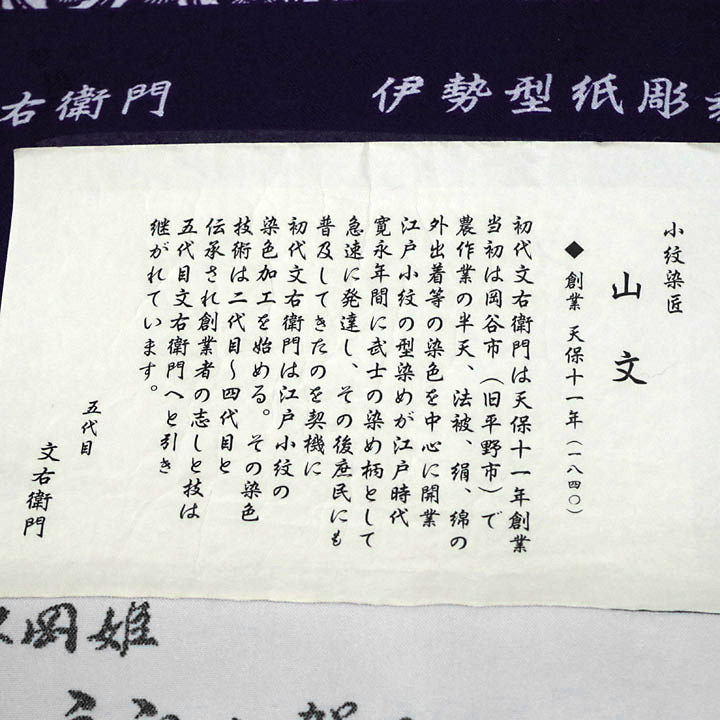 右衛門
伊勢型紙彫
小紋染匠
山文
◆創業 天保十一年(一八四〇)
初代文右衛門は天保十一年創業
当初は岡谷市(旧平野市)で
農作業の半天、法被、絹、綿の
外出着等の染色を中心に開業
江戸小紋の型染めが江戸時代
寛永年間に武士の染め柄として
急速に発達し、その後庶民にも
普及してきたのを契機に
初代文右衛門は江戸小紋の
染色加工を始める。その染色
技術は二代目～四代目と
伝承され創業者の志しと技は
五代目文右衛門へと引き
継がれています。
五代目
文右衛門
岡姫